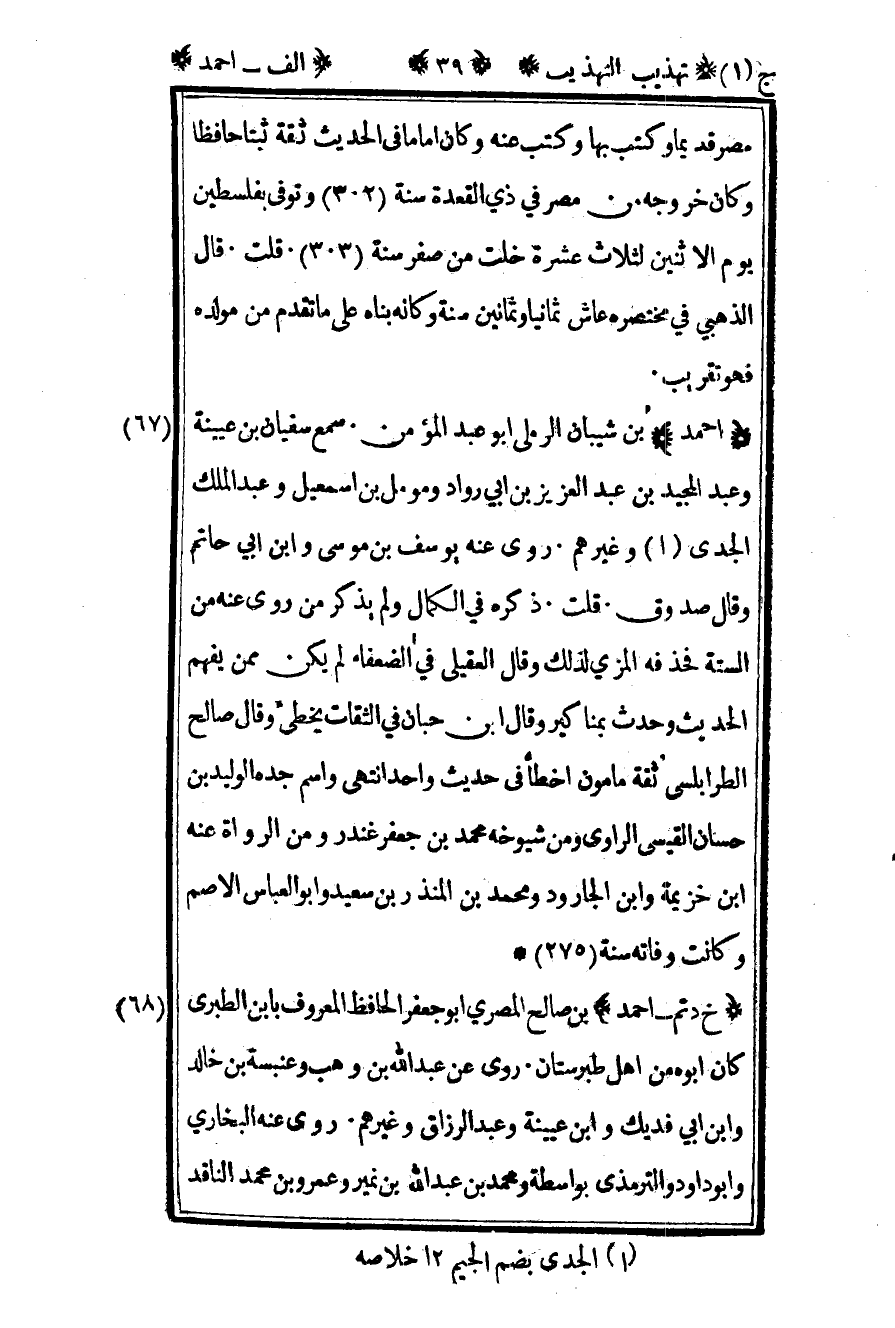 ج (١) ﴿ تهذيب التهذيب ﴾ ﴿ ٣٩ ﴾ ﴿ الف ـ احمد ﴾
مصر قديما وكتب بها وكتب عنه وكان اماما فى الحديث ثقة ثبتا حافظا
وكان خروجه من مصر في ذي القعدة سنة (٣٠٢) وتوفى بفلسطين
يوم الاثنين لثلاث عشرة خلت من صفر سنة (٣٠٣) ٠ قلت ٠ قال
الذهبي في مختصره عاش ثمانيا وثمانين سنة وكانه بناه على ماتقدم من مولده
فهو تقريب ٠
(٦٧) ﴿ احمد ﴾ بن شيبان الرملى ابو عبد المؤمن ٠ سمع سفيان بن عيينة
وعبد المجيد بن عبد العزيز بن ابي رواد ومومل بن اسمعيل و عبد الملك
الجدى (١) وغيرهم ٠ روى عنه يوسف بن موسى وابن ابي حاتم
وقال صدوق ٠ قلت ٠ ذكره في الكمال ولم يذكر من روى عنه من
الستة فحذفه المزي لذلك وقال العقيلى في الضعفاء لم يكن ممن يفهم
الحديث وحدث بمناكير وقال ابن حبان في الثقات يخطئ وقال صالح
الطرابلسى ثقة مامون اخطأ فى حديث واحد انتهى واسم جده الوليد بن
حسان القيسى الراوى ومن شيوخه محمد بن جعفر غندر و من الرواة عنه
ابن خزيمة وابن الجارود ومحمد بن المنذر بن سعيد وابو العباس الاصم
وكانت وفاته سنة (٢٧٥) *
(٦٨) ﴿ خ د تم ـ احمد ﴾ بن صالح المصري ابو جعفر الحافظ المعروف بابن الطبرى
كان ابوه من اهل طبرستان ٠ روى عن عبدالله بن وهب وعنبسة بن خالد
وابن ابي فديك و ابن عيينة وعبد الرزاق وغيرهم ٠ روى عنه البخاري
وابو داود والترمذى بواسطة و محمد بن عبدالله بن نمير وعمرو بن محمد الناقد
(١) الجدى بضم الجيم ١٢ خلاصه